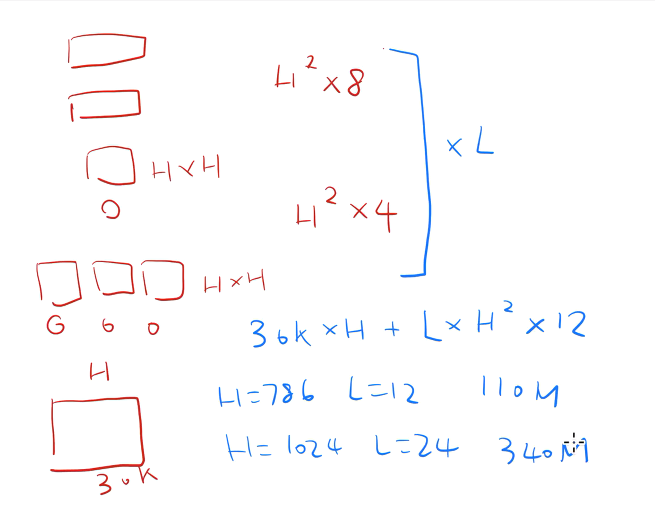 H² × 8
× L
H × H
O
H² × 4
H × H
G 6 0
30k × H + L × H² × 12
H
H=786 L=12 110M
H=1024 L=24 340M
30k